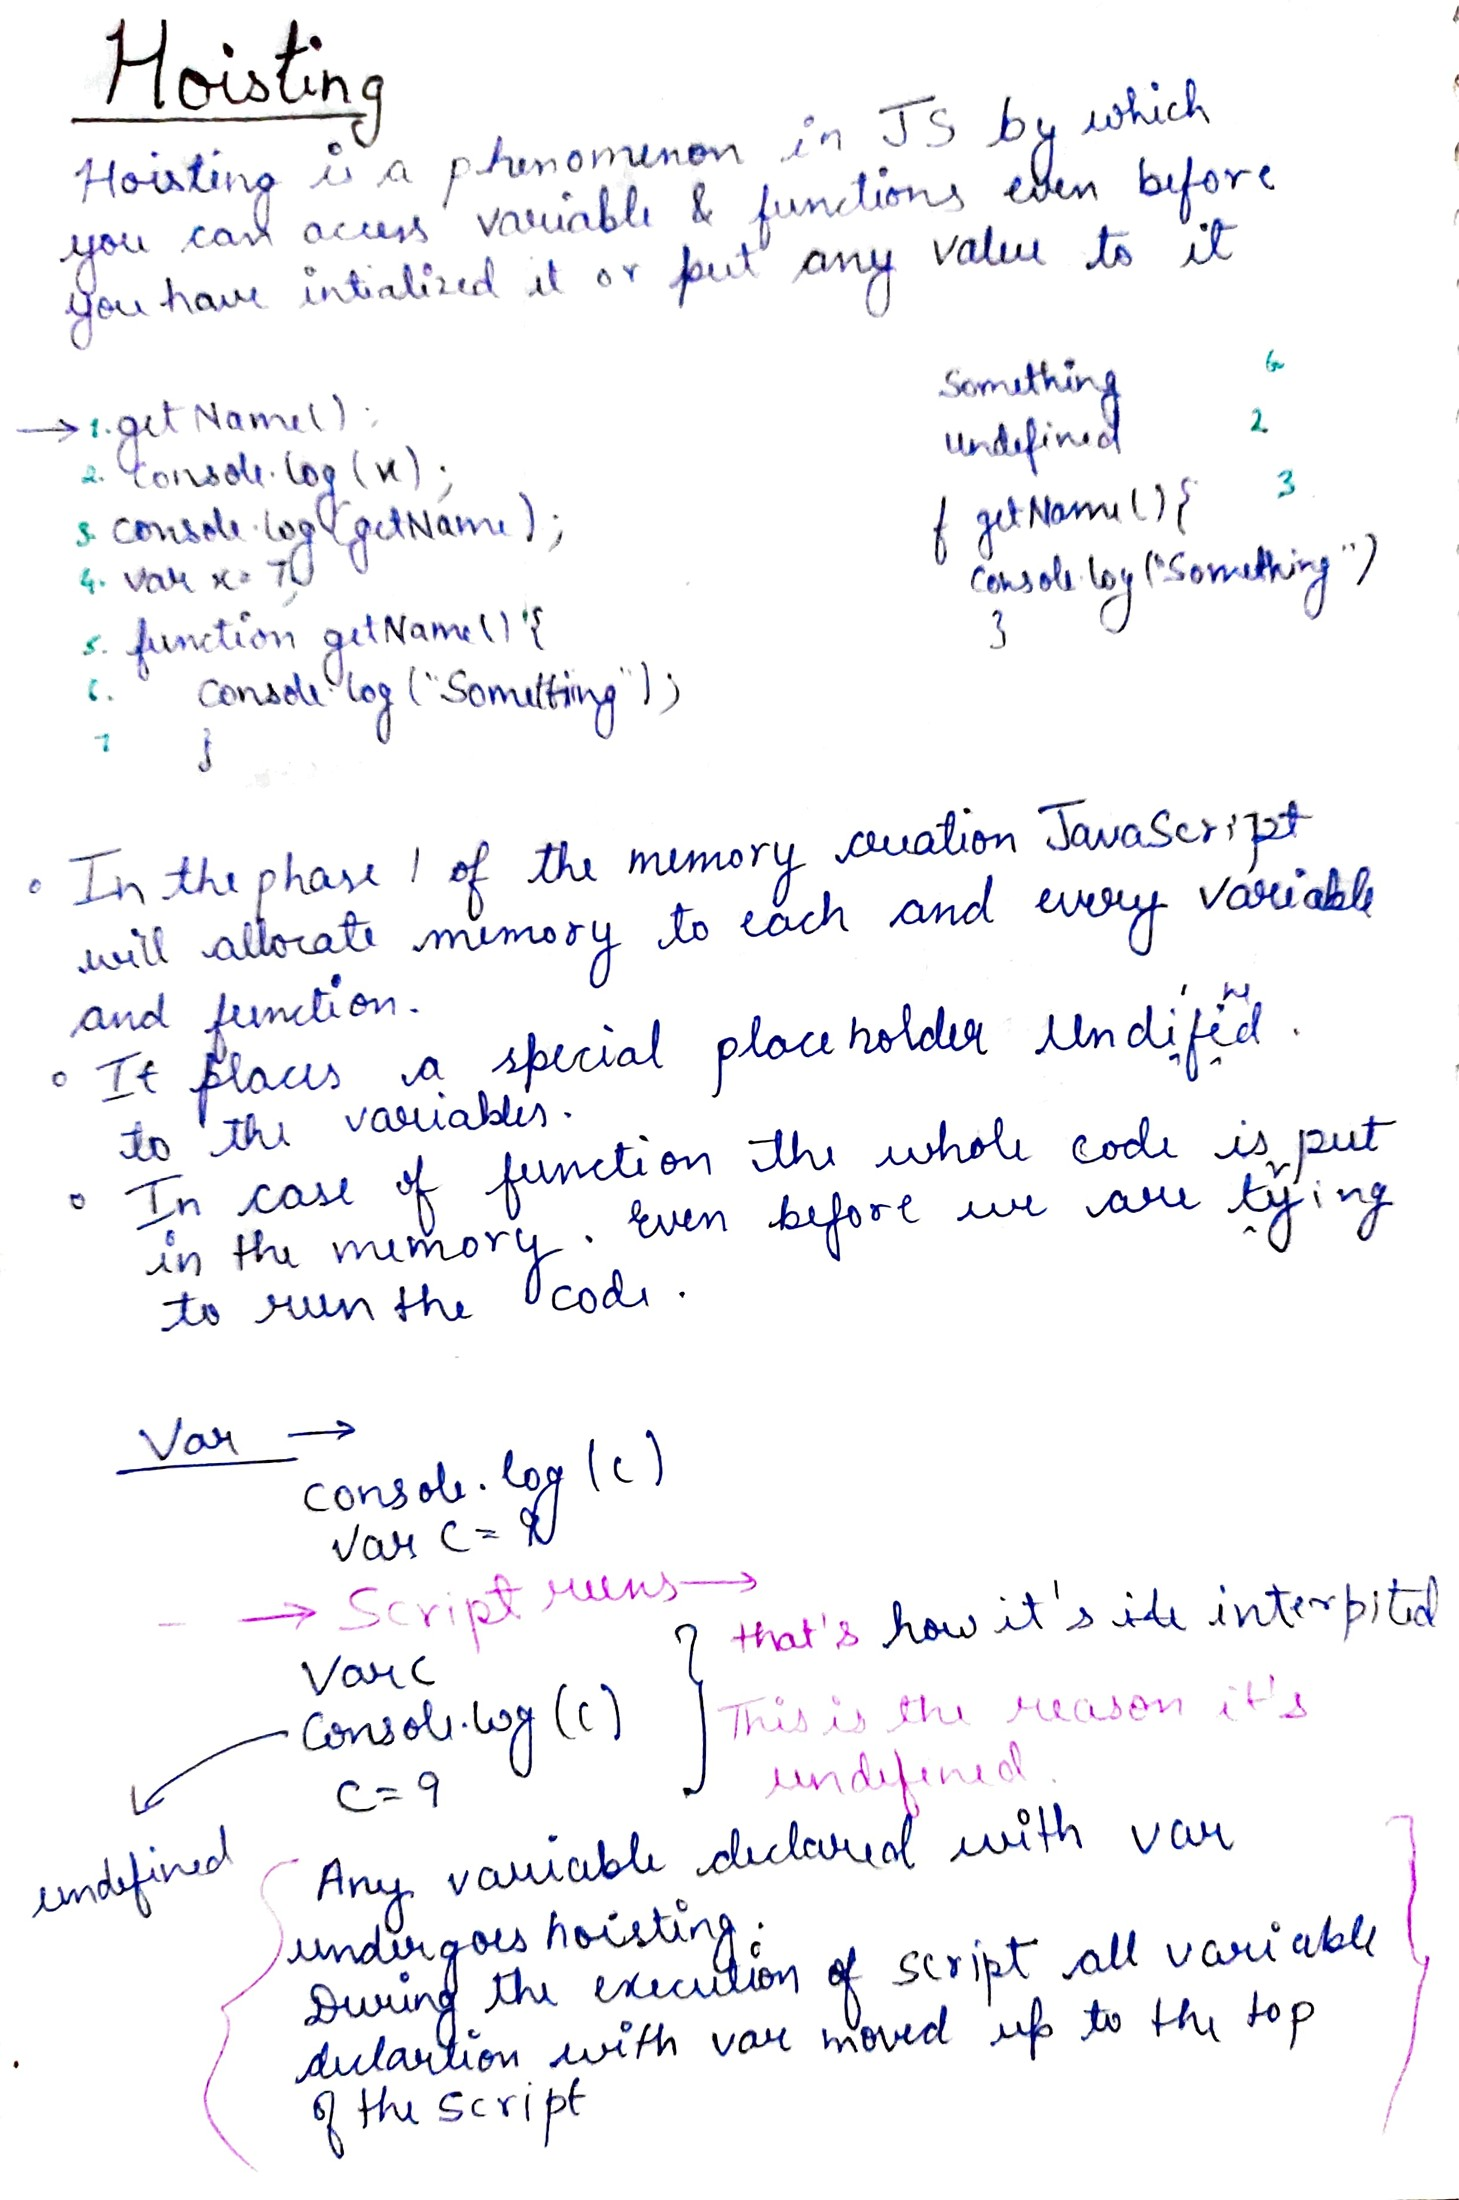 Hoisting
Hoisting is a phenomenon in JS by which
you can access variable & functions even before
you have intialized it or put any value to it
→ 1. getName();
2. console.log(x);
3. console.log(getName);
4. var x = 7;
5. function getName(){
6. console.log("Something");
7 }
Something 6
undefined 2
f getName(){ 3
console.log("Something")
}
• In the phase 1 of the memory creation JavaScript
will allocate memory to each and every variable
and function.
• It places a special placeholder undifined.
to the variables.
• In case of function the whole code is put
in the memory. Even before we are trying
to run the code.
Var →
console.log(c)
var c = 9
- → Script runs →
Var c
Console.log(c)
c = 9
undefined
that's how it's interpited
This is the reason it's
undefined.
Any variable declared with var
undergoes hoisting.
During the execution of script all variable
declartion with var moved up to the top
of the script